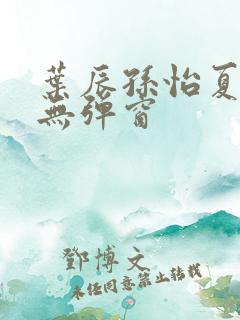 葉辰孫怡夏
無彈窗
鄧博文
未任同意禁止转載